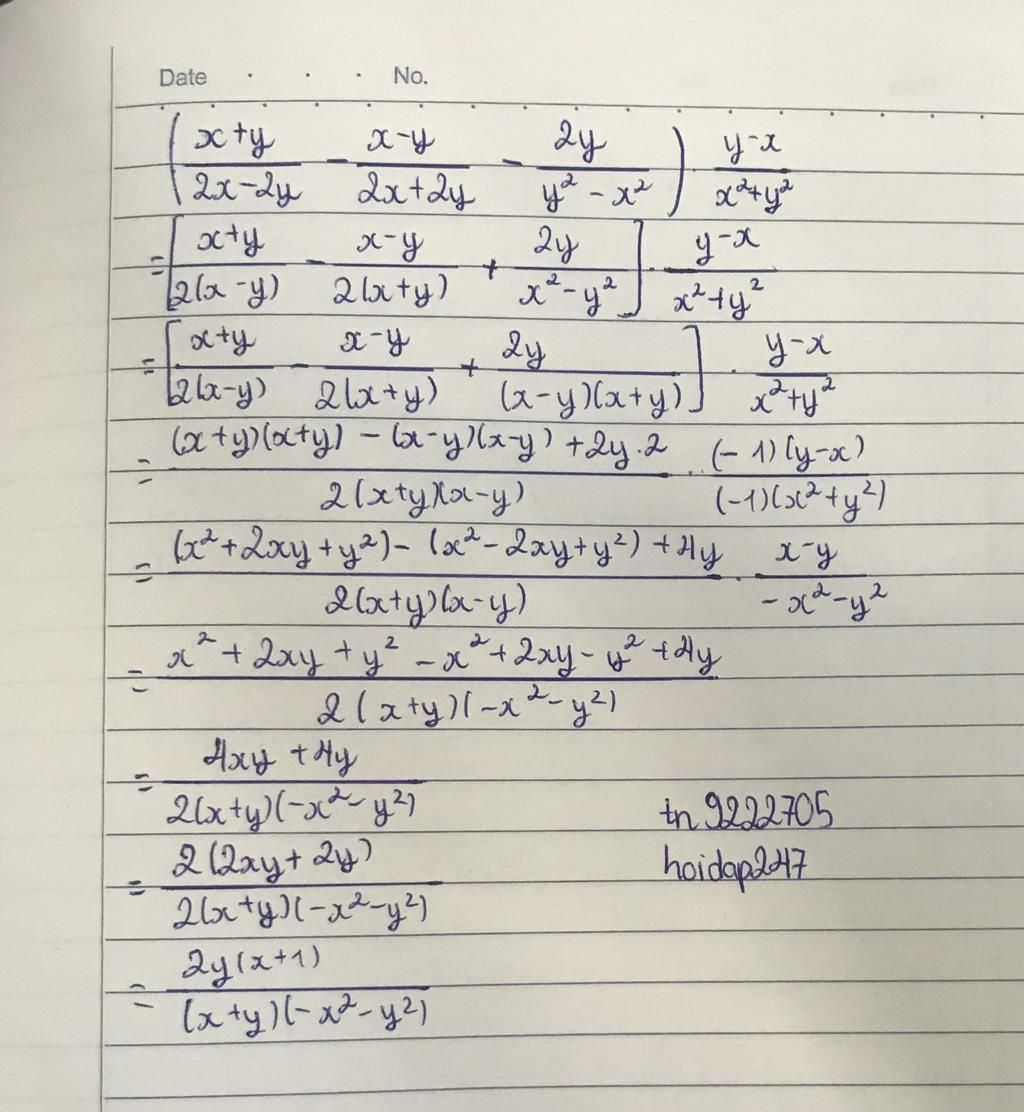 Date . . . No.
( (x+y)/(2x-2y) - (x-y)/(2x+2y) - 2y/(y² - x²) ) . (y-x)/(x²+y²)
= [ (x+y)/(2(x-y)) - (x-y)/(2(x+y)) + 2y/(x²-y²) ] . (y-x)/(x²+y²)
= [ (x+y)/(2(x-y)) - (x-y)/(2(x+y)) + 2y/((x-y)(x+y)) ] . (y-x)/(x²+y²)
= ((x+y)(x+y) - (x-y)(x-y) + 2y.2)/(2(x+y)(x-y)) . ((-1)(y-x))/((-1)(x²+y²))
= ((x²+2xy+y²) - (x²-2xy+y²) + 4y)/(2(x+y)(x-y)) . (x-y)/(-x²-y²)
= (x² + 2xy + y² - x² + 2xy - y² + 4y)/(2(x+y)(-x²-y²))
= (4xy + 4y)/(2(x+y)(-x²-y²))
tn9222705
= (2(2xy + 2y))/(2(x+y)(-x²-y²))
hoidap247
= (2y(x+1))/((x+y)(-x²-y²))